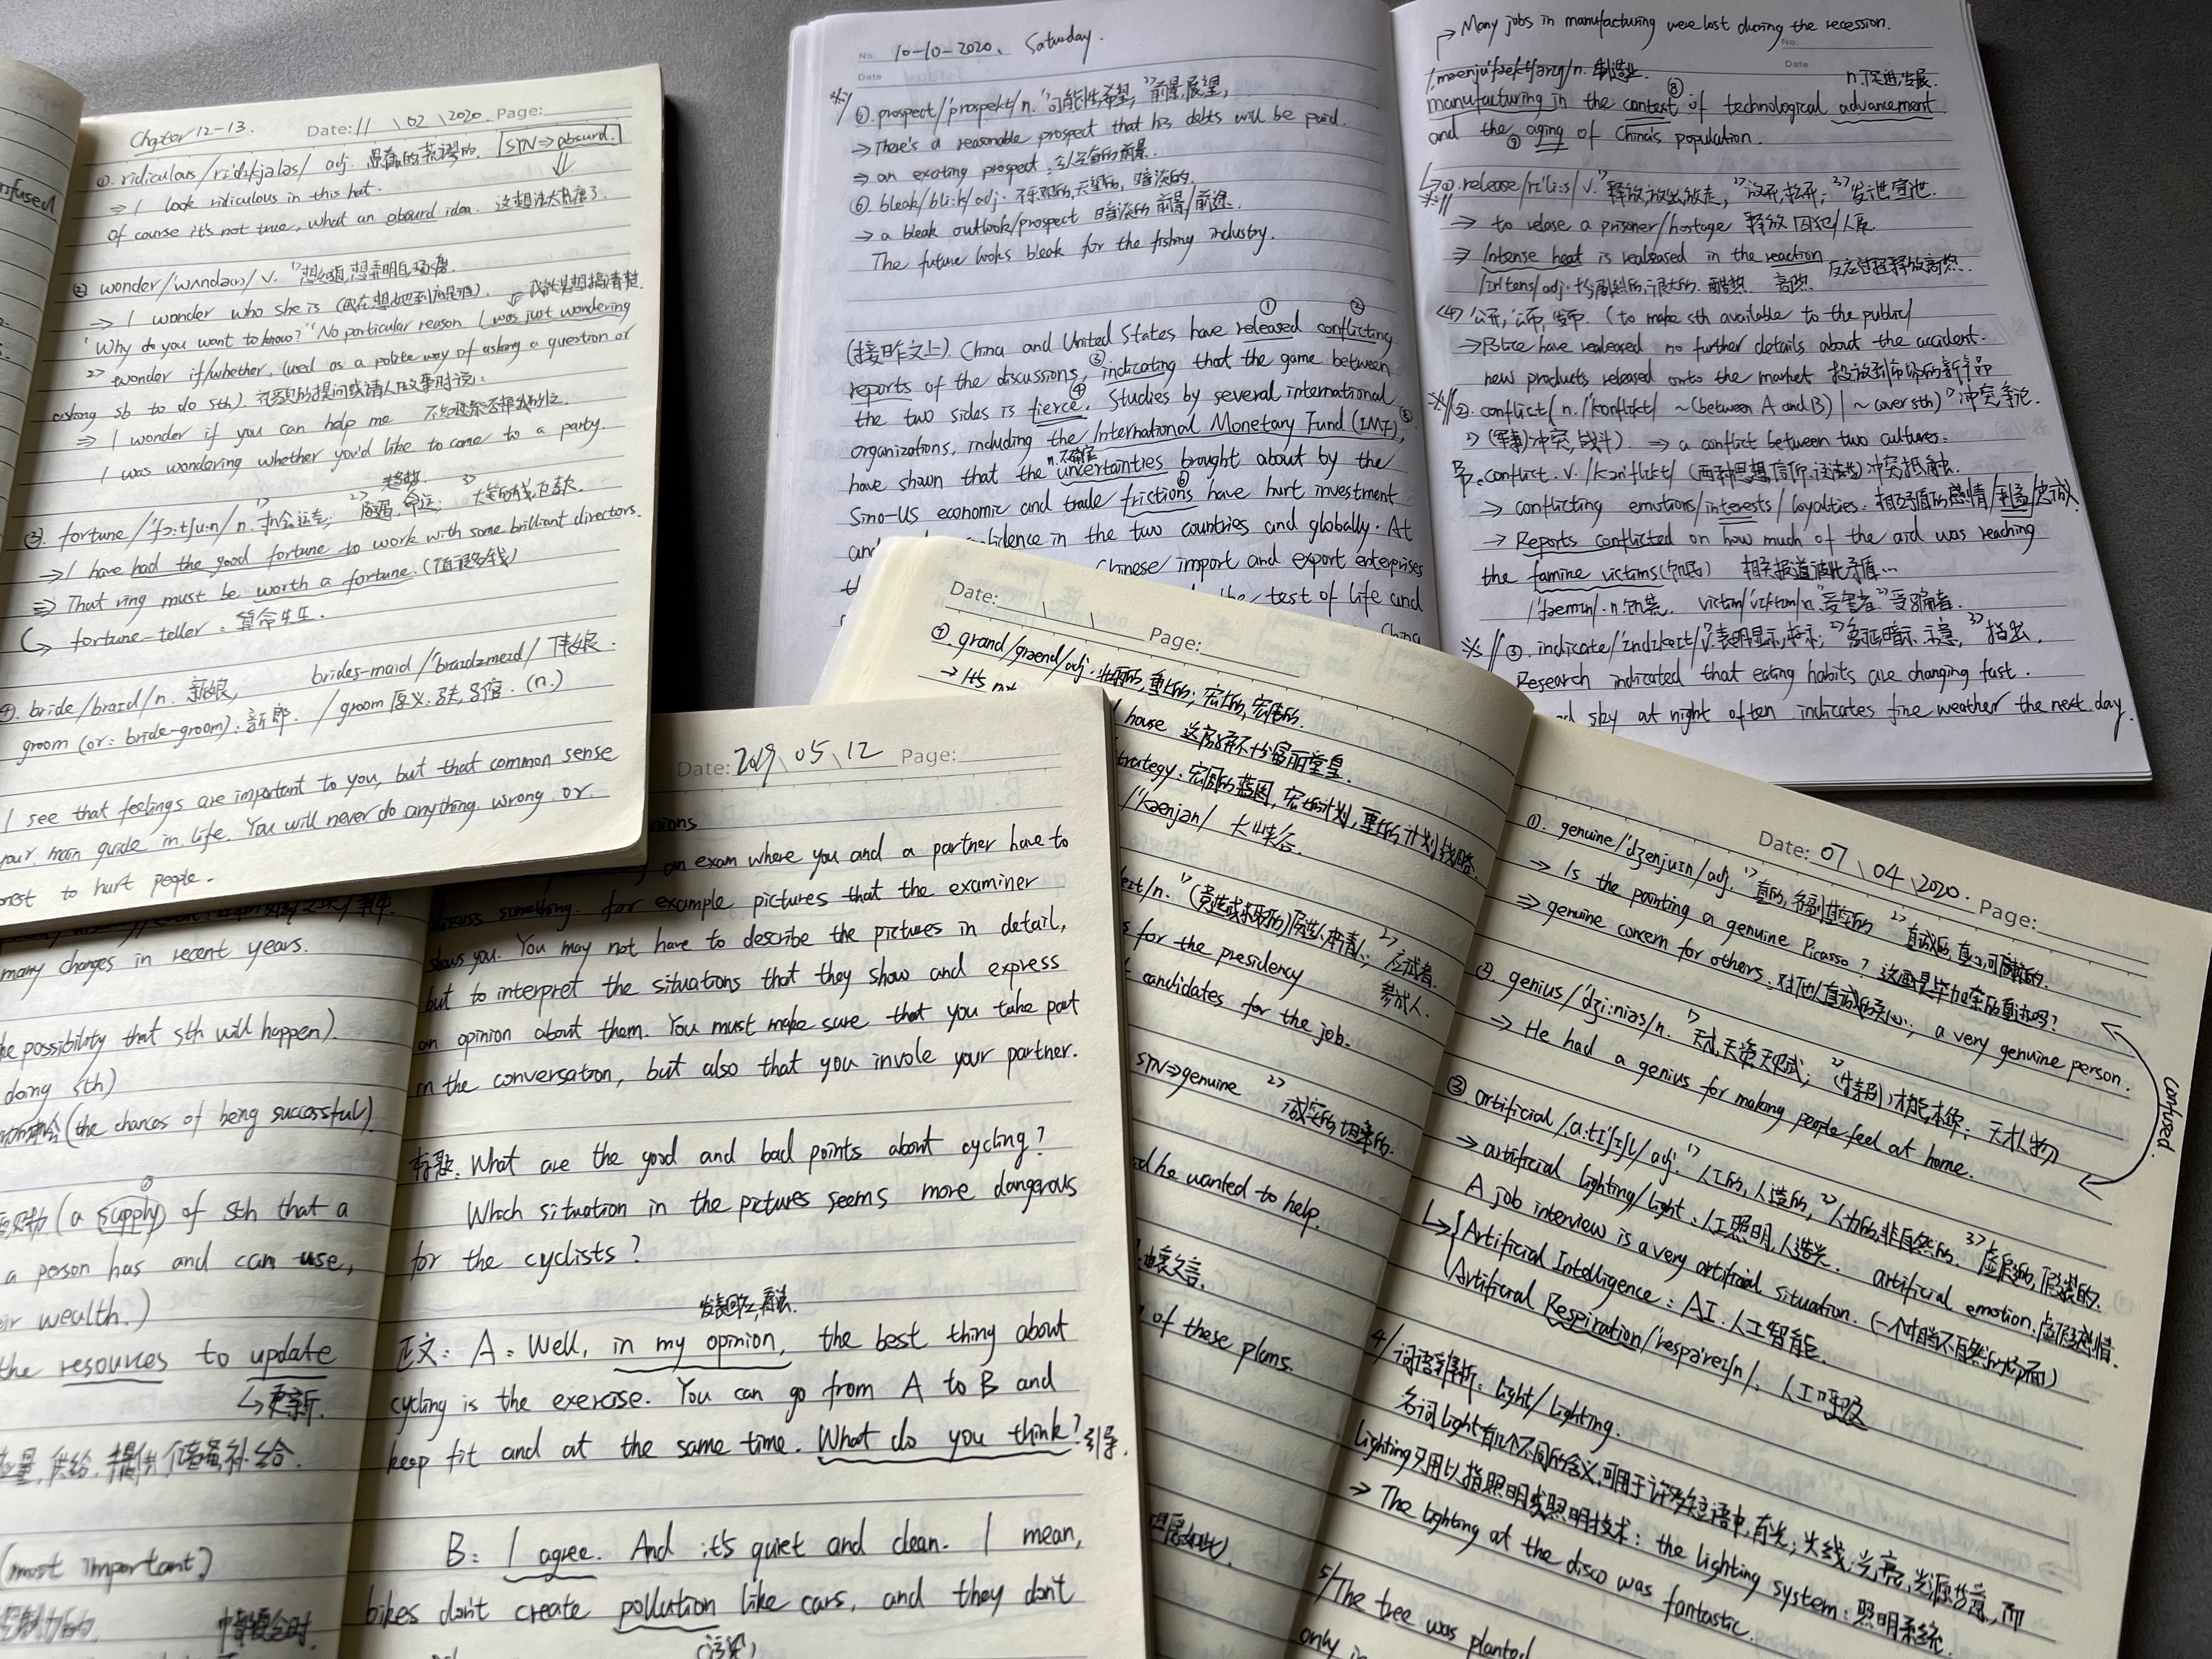 Chapter 12-13. Date: 11 \ 02 \ 2020 Page:
①. ridiculous/rɪˈdɪkjələs/ adj. 愚蠢的, 荒谬的. STN⇒absurd.
⇒ I look ridiculous in this hat.
Of course it's not true, what an absurd idea. 这想法太荒唐了
② wonder/wʌndə(r)/ v.
⇒ I wonder who she is
"Why do you want to know?" "No particular reason. I was just wondering
2> wonder if/whether. (used as a polite way of asking a question or
asking sb to do sth).
⇒ I wonder if you can help me
I was wondering whether you'd like to come to a party.
③. fortune /ˈfɔːtʃuːn/ n.
→ I have had the good fortune to work with some brilliant directors.
⇒ That ring must be worth a fortune. (值很多钱)
→ fortune-teller: 算命先生.
④. bride/braɪd/n. 新娘, brides-maid/ˈbraɪdzmeɪd/ 伴娘.
groom (or: bride-groom): 新郎. /groom 原义: 马夫, (n.)
I see that feelings are important to you, but that common sense
your main guide in life. You will never do anything wrong or
to hurt people.
nfused
No. 10-10-2020. Saturday.
Date
⑤. prospect/ˈprɒspekt/n. 1>可能性, 希望, 2>前景, 展望,
→ There's a reasonable prospect that his debts will be paid.
⇒ an exciting prospect:
⑥. bleak/bliːk/adj. 不乐观的, 无望的, 暗淡的.
→ a bleak outlook/prospect 暗淡的前景/前途.
The future looks bleak for the fishing industry.
① ②
(接昨文上). China and United States have released conflicting
reports of the discussions, ③ indicating that the game between
the two sides is ④ fierce. Studies by several international
organizations, including the International Monetary Fund (IMF), ⑤
have shown that the uncertainties brought about by the
Sino-US economic and trade frictions ⑥ have hurt investment
and confidence in the two countries and globally. At
Chinese import and export enterprises
the test of life and
China
→ Many jobs in manufacturing were lost during the recession.
No.
Date
n. 制造业.
manufacturing in the context ⑧ of technological advancement
and the ⑨ aging of China's population.
①. release/rɪˈliːs/ v. 1>释放, 放出, 放走, 2>放开, 松开; 3>发泄, 宣泄.
→ to relase a prisoner/hostage 释放囚犯/人质
⇒ Intense heat is realeased in the reaction 反应过程释放高热.
(4) 公开, 公布, 发布. (to make sth available to the public/
→ Police have realeased no further details about the accident.
new products released onto the market 投放到市场的新产品
②. conflict/n. /ˈkɒnflɪkt/ ~(between A and B) | ~(over sth) 1>冲突, 争论.
2> (军事)冲突, 战斗). ⇒ a conflict between two cultures.
B. conflict. v. /kənˈflɪkt/ 冲突, 抵触.
→ conflicting emotions/interests/loyalties: 相互矛盾的感情/利益/忠诚.
→ Reports conflicted on how much of the aid was reaching
the famine victims(饥民) 相关报道彼此矛盾...
/ˈfæmɪn/·n. 饥荒. victim/ˈvɪktɪm/n. 1>受害者. 2>受骗者.
③. indicate/ˈɪndɪkeɪt/v.
Research indicated that eating habits are changing fast.
sky at night often indicates fine weather the next day.
Date: \ \ Page:
⑦. grand/ɡrænd/adj. 壮丽的, 重大的; 宏大的, 宏伟的.
→ It's not
house 这房子不十分富丽堂皇.
strategy: 宏图的蓝图, 宏伟计划, 重大的计划, 战略.
/ˈkænjən/ 大峡谷.
for the presidency
candidates for the job.
STN⇒genuine 2> 诚实的, 坦率的.
he wanted to help.
由衷之言.
of these plans.
Date: 07 \ 04 \ 2020. Page:
①. genuine/ˈdʒenjuɪn/adj.
→ Is the painting a genuine Picasso? 这画是毕加索的真迹吗?
⇒ genuine concern for others: 对他人真诚的关心; a very genuine person.
② genius/ˈdʒiːniəs/n.
→ He had a genius for making people feel at home.
confused.
③ artificial/ˌɑːtɪˈfɪʃl/ adj. 1>人工的, 人造的, 2>人为的, 非自然的. 3>虚假的, 假装的.
→ artificial lighting/light: 人工照明, 人造光. artificial emotion. 虚假感情
A job interview is a very artificial situation.
Artificial Intelligence: AI. 人工智能.
Artificial Respiration/ˌrespəˈreɪʃn/: 人工呼吸
4/ 词语辨析: light/lighting.
名词light有几个不同的含义, 可用于许多短语中, 有光; 光线; 光亮, 光源等意, 而
lighting只用以指照明或照明技术: the lighting system: 照明系统.
→ The lighting at the disco was fantastic.
5/ The tree was planted
only in
Date: 2019 \ 05 \ 12 Page:
nions
an exam where you and a partner have to
discuss something. for example pictures that the examiner
shows you. You may not have to describe the pictures in detail,
but to interpret the situations that they show and express
an opinion about them. You must make sure that you take part
in the conversation, but also that you invole your partner.
What are the good and bad points about cycling?
Which situation in the pictures seems more dangerous
for the cyclists?
正文: A: Well, in my opinion, the best thing about
cycling is the exercise. You can go from A to B and
keep fit and at the same time. What do you think? 引导.
B: I agree. And it's quiet and clean. I mean,
bikes don't create pollution like cars, and they don't
(污染)
many changes in recent years.
he possibility that sth will happen).
doing sth)
(the chances of being successful)
(a supply) of sth that a
a person has and can use,
eir wealth.)
the resources to update
↳更新.
供给, 提供, 储备, 补给.
(most important)